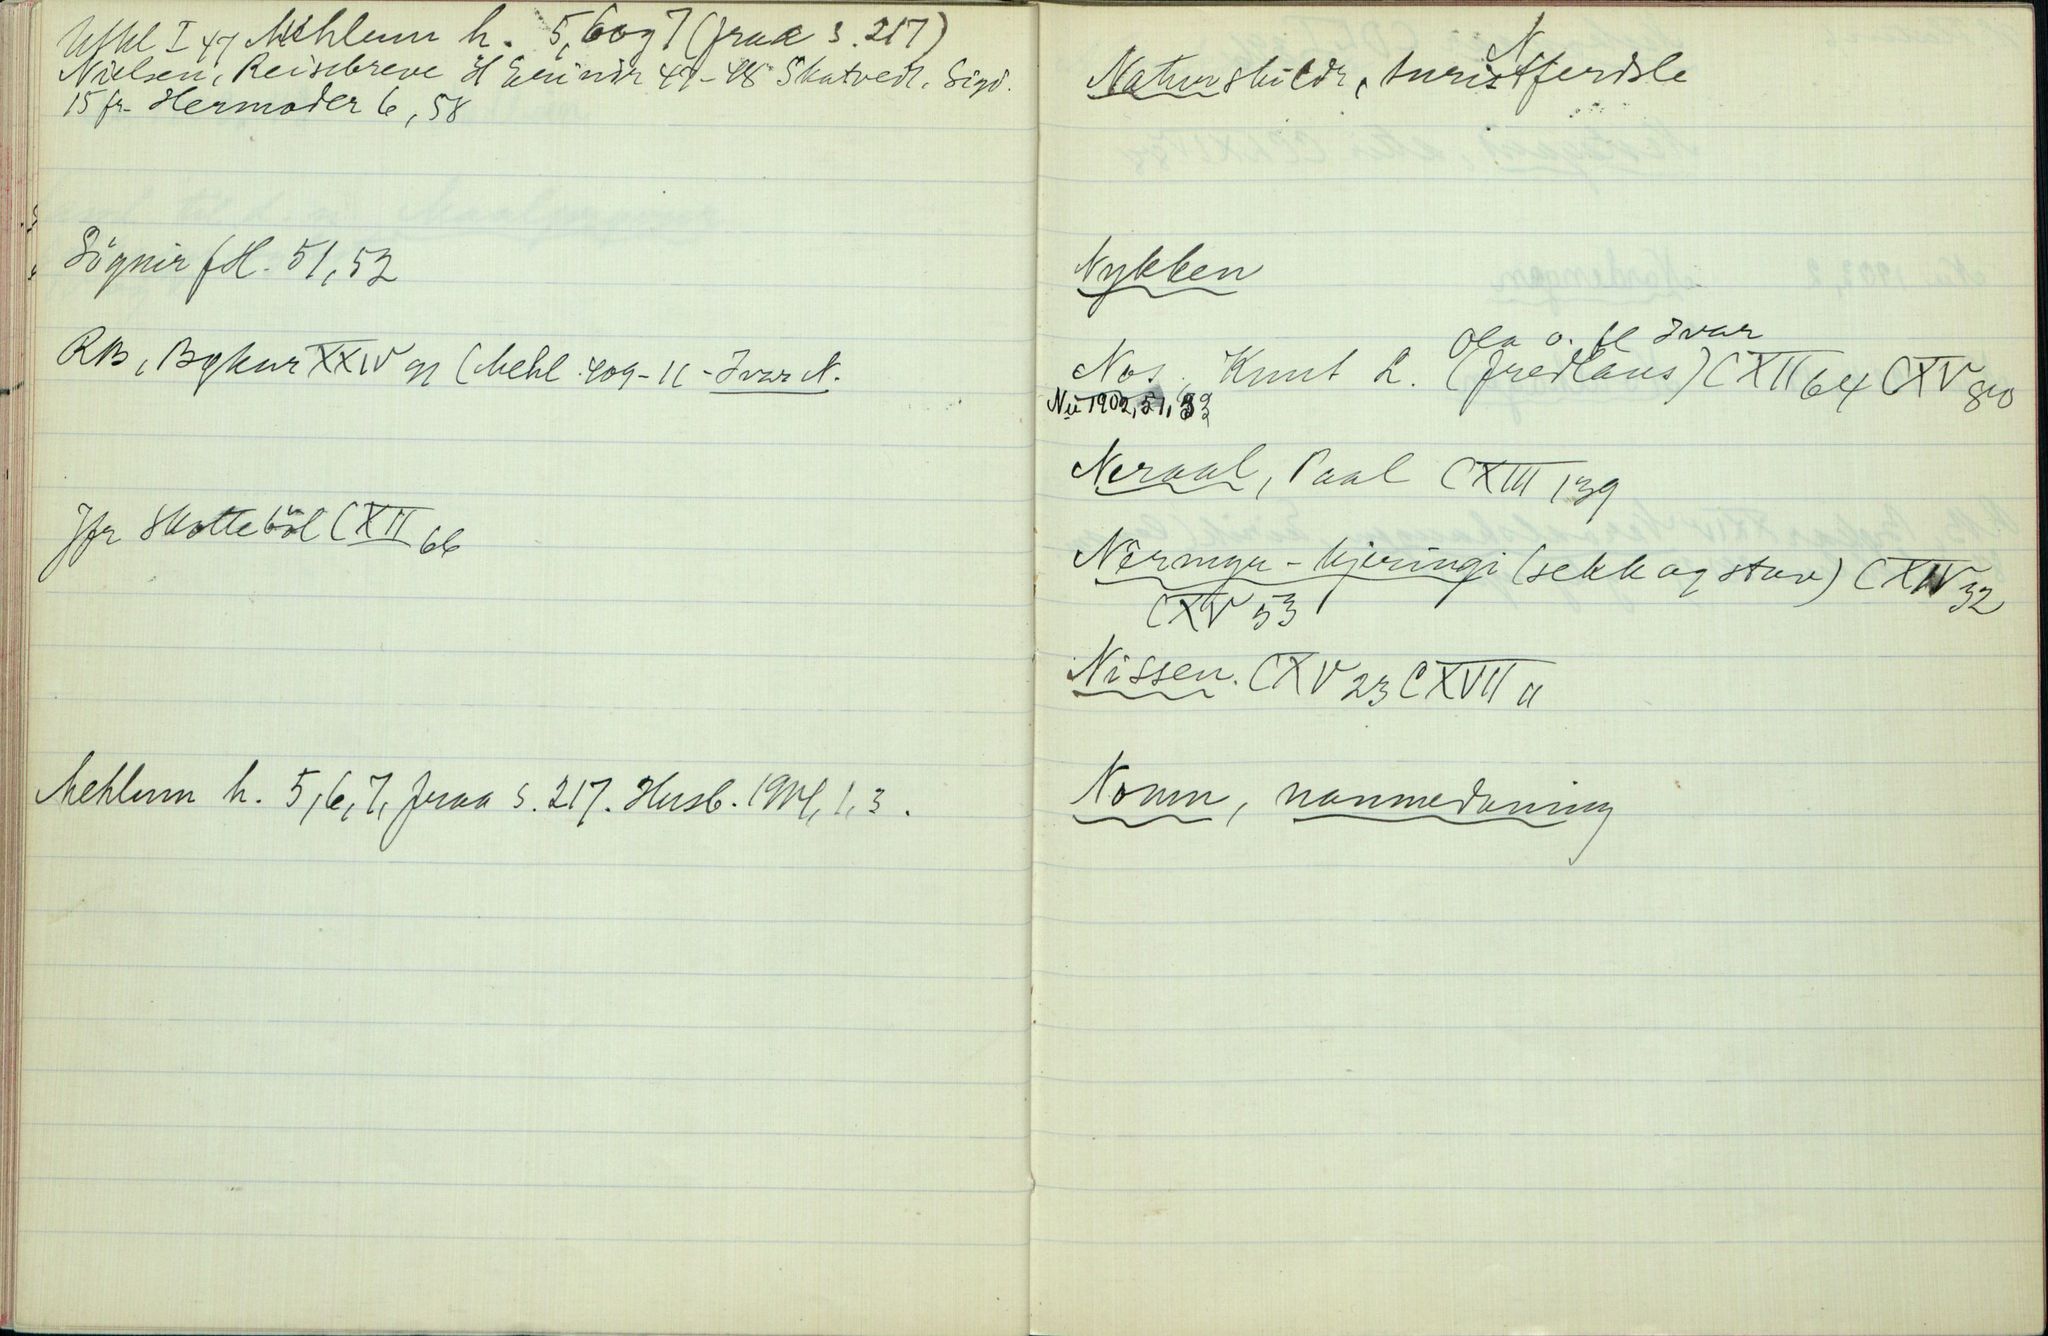 Uffkl I 47 Mehlum h. 5, 6 og 7 (fraa s. 217)
Nielsen, Reisebreve H 47-48 Skatvedt, Sigd.
15 fr. Hermoder 6, 58
Søgnir fH. 51, 52
RB, Bøkur XXIV 91 (Mehl. 409-11 - Ivar N.
Jfr Skottebøl CXII 66
Mehlum h. 5, 6, 7, fraa s. 217. Husb. 1904, 1, 3.
N
Naturskildr, turistferdsle
Nykken
Ola o. fl Ivar
Nos, Knut L. (fredlaus) CXII 64 CXV 80
1902, 51,
Neraal, Paal CXIII 139
Nermyr-kjeringi (sekk og stav) CXIV 32
CXV 53
Nissen. CXV 23 CXVII 11
Nomn, nanmedaning